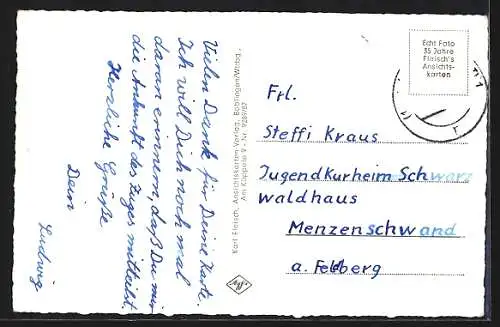 Vielen Dank für Deine Karte.
Ich will Dich noch mal
daran erinnern, daß Du mir
die Ankunft des Zuges mitteilst.
Herzliche Grüße
Dein
Ludwig
Karl Fleisch, Ansichtskarten-Verlag, Böblingen/Württbg.,
Am Käppele 9 - Nr. 9289/67
Agfa
Echt Foto
35 Jahre
Fleisch's
Ansichts-
karten
Frl.
Steffi Kraus
Jugendkurheim Schwarz
waldhaus
Menzenschwand
a. Feldberg